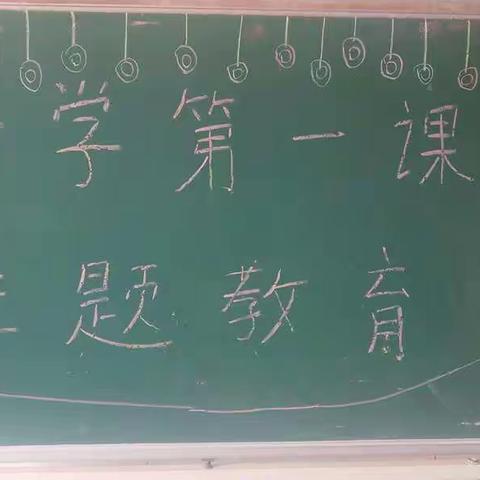 学第一课
题教育